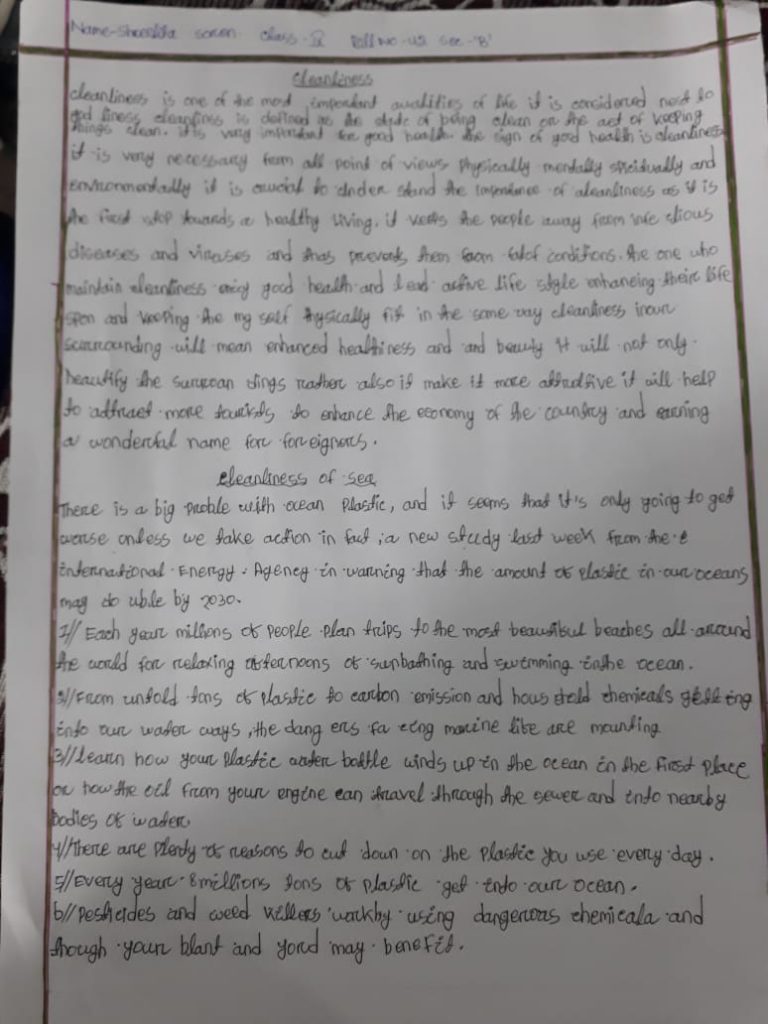 Name- soren class-IX Roll No-42 sec-'B'
cleanliness
cleanliness is one of the most important qualities of life it is considered next to
god liness cleanliness is defined as the state of being clean or the act of keeping
things clean. it is very important for good health. the sign of good health is cleanliness
it is very necessary from all point of views physically mentally spiridually and
environmentally it is crucial to under stand the importence of cleanliness as it is
the first step towards a healthy living. it keeps the people away from infe ctious
diseases and viruses and thas prevents them from conditions. the one who
maintain cleanliness enjoy good health and lead active life style enhancing their life
span and keeping the my self physically fit in the same way cleanliness inour
surrounding will mean enhanced healthiness and and beauty it will not only
beautify the surroun dings rather also it make it more attractive it will help
to attract more tourists to enhance the economy of the country and earning
a wonderful name for for eigners.
cleanliness of sea
There is a big proble with ocean plastic, and it seems that it's only going to get
worse onless we take action in fact ; a new study last week from the
international Energy Agency in warning that the amount of plastic in our oceans
may do uble by 2030.
1// Each year millions of people plan trips to the most beautiful beaches all around
the world for relaxing afternoons of sunbathing and swimming inthe ocean.
2// From untold tons of plastic to carbon emission and hous ehold chemicals gett ing
into our water ways, the dang ers fa cing marine life are mounting
3// learn how your plastic water bottle winds up in the ocean in the first place
or how the oil from your engine can travel through the sewer and into nearby
bodies of water
4// There are plenty of reasons to cut down on the plastic you use every day.
5// Every year 8 millions tons of plastic get into our ocean.
6// Pesticides and weed killers workby using dangerous chemicala and
though your blant and yord may benefit.